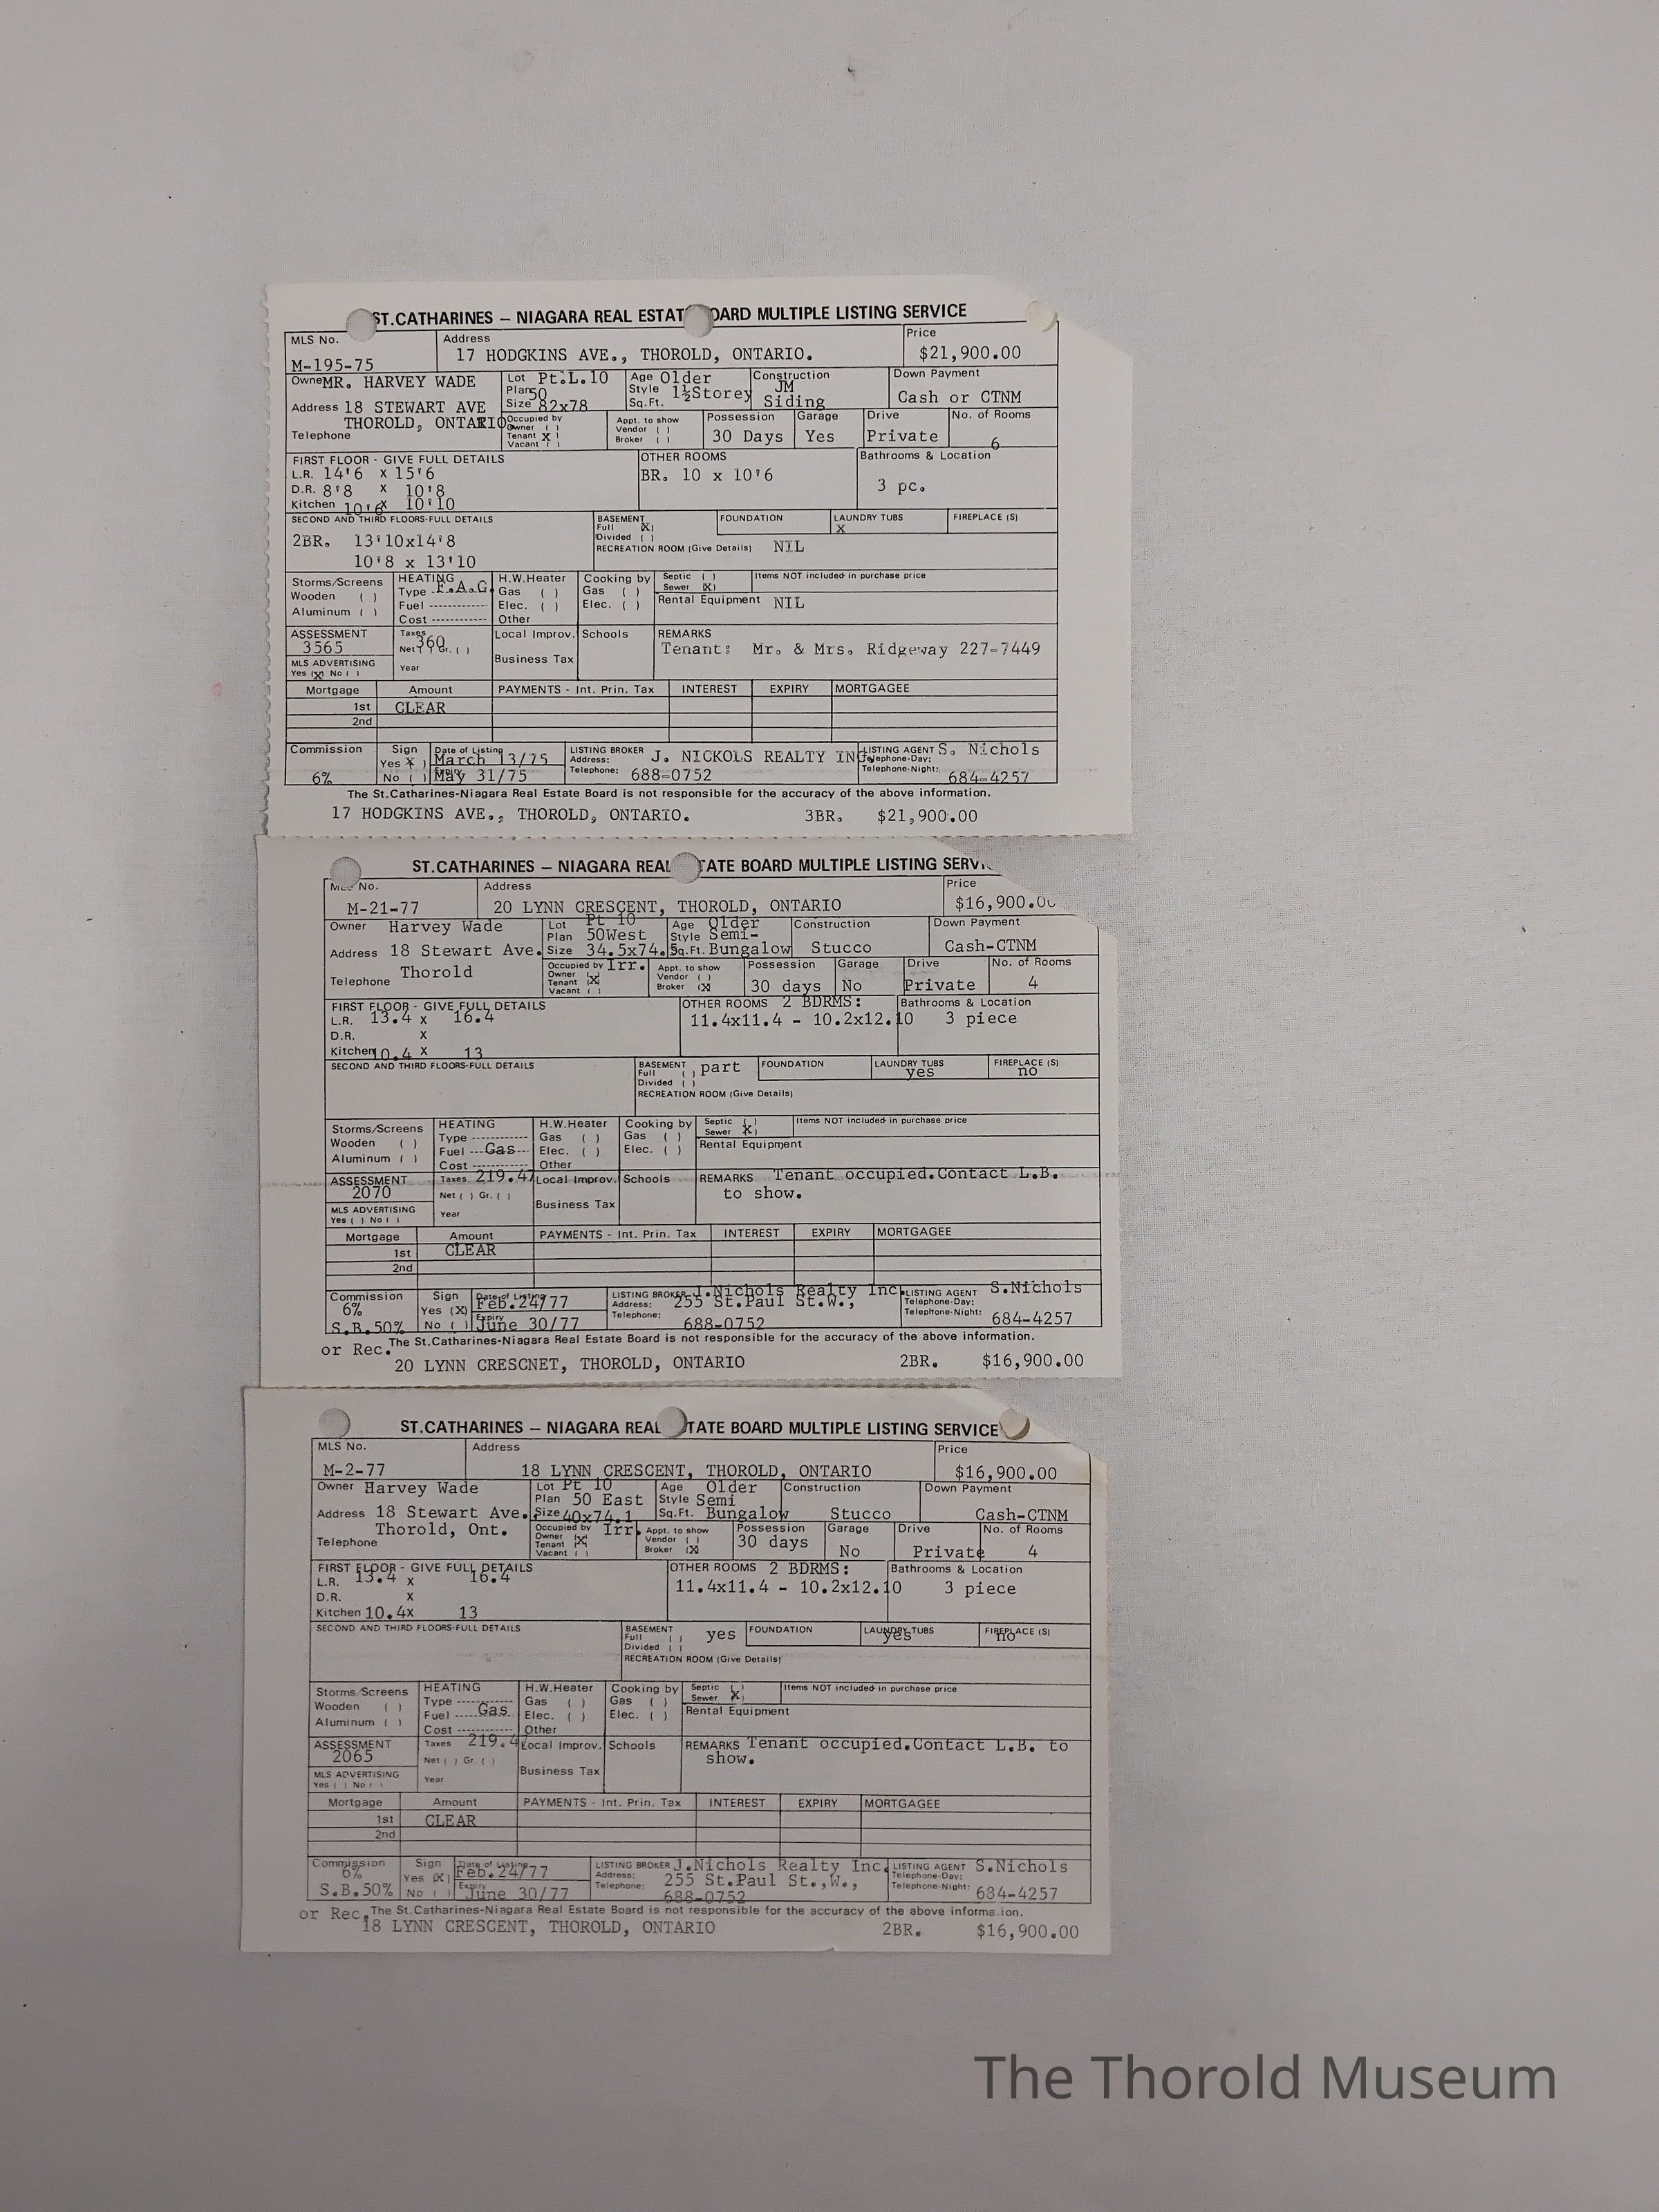 ST.CATHARINES – NIAGARA REAL ESTAT OARD MULTIPLE LISTING SERVICE
MLS No. Address Price
M-195-75 17 HODGKINS AVE., THOROLD, ONTARIO. $21,900.00
Owne MR. HARVEY WADE Lot Pt.L.10 Age Older Construction Down Payment
Plan 50 Style 1½Storey JM
Address 18 STEWART AVE Size 82x78 Sq.Ft. Siding Cash or CTNM
THOROLD, ONTARIO Occupied by Appt. to show Possession Garage Drive No. of Rooms
Owner ( ) Vendor ( )
Telephone Tenant X ) Broker ( ) 30 Days Yes Private 6
Vacant ( )
FIRST FLOOR - GIVE FULL DETAILS OTHER ROOMS Bathrooms & Location
L.R. 14'6 x 15'6 BR. 10 x 10'6
D.R. 8'8 X 10'8 3 pc.
Kitchen 10'6 X 10'10
SECOND AND THIRD FLOORS-FULL DETAILS BASEMENT FOUNDATION LAUNDRY TUBS FIREPLACE (S)
Full (X) X
2BR. 13'10x14'8 Divided ( )
RECREATION ROOM (Give Details) NIL
10'8 x 13'10
Storms/Screens HEATING H.W.Heater Cooking by Septic ( ) Items NOT included in purchase price
Wooden ( ) Type F.A.G. Gas ( ) Gas ( ) Sewer (X)
Aluminum ( ) Fuel ------------ Elec. ( ) Elec. ( ) Rental Equipment NIL
Cost ------------ Other
ASSESSMENT Taxes 360 Local Improv. Schools REMARKS
3565 Net ( ) Gr. ( ) Tenant: Mr. & Mrs. Ridgeway 227-7449
MLS ADVERTISING Year Business Tax
Yes (X) No ( )
Mortgage Amount PAYMENTS - Int. Prin. Tax INTEREST EXPIRY MORTGAGEE
1st CLEAR
2nd
Commission Sign Date of Listing LISTING BROKER J. NICKOLS REALTY INC LISTING AGENT S. Nichols
Yes X ) March 13/75 Address: Telephone-Day:
6% No ( ) Expiry May 31/75 Telephone: 688-0752 Telephone-Night: 684-4257
The St.Catharines-Niagara Real Estate Board is not responsible for the accuracy of the above information.
17 HODGKINS AVE., THOROLD, ONTARIO. 3BR. $21,900.00
ST.CATHARINES – NIAGARA REAL TATE BOARD MULTIPLE LISTING SERVI
MLS No. Address Price
M-21-77 20 LYNN CRESCENT, THOROLD, ONTARIO $16,900.00
Owner Harvey Wade Lot Pt 10 Age Older Construction Down Payment
Plan 50West Style Semi-
Address 18 Stewart Ave. Size 34.5x74. Sq.Ft. Bungalow Stucco Cash-CTNM
Thorold Occupied by Irr. Appt. to show Possession Garage Drive No. of Rooms
Owner ( ) Vendor ( )
Telephone Tenant (X) Broker (X) 30 days No Private 4
Vacant ( )
FIRST FLOOR - GIVE FULL DETAILS OTHER ROOMS 2 BDRMS: Bathrooms & Location
L.R. 13.4 x 16.4 11.4x11.4 - 10.2x12.10 3 piece
D.R. X
Kitchen 10.4 X 13
SECOND AND THIRD FLOORS-FULL DETAILS BASEMENT part FOUNDATION LAUNDRY TUBS FIREPLACE (S)
Full ( ) yes no
Divided ( )
RECREATION ROOM (Give Details)
Storms/Screens HEATING H.W.Heater Cooking by Septic ( ) Items NOT included in purchase price
Wooden ( ) Type ------------ Gas ( ) Gas ( ) Sewer X)
Aluminum ( ) Fuel ---Gas--- Elec. ( ) Elec. ( ) Rental Equipment
Cost ------------ Other
ASSESSMENT Taxes 219.47 Local Improv. Schools REMARKS Tenant occupied.Contact L.B.
2070 Net ( ) Gr. ( ) to show.
MLS ADVERTISING Year Business Tax
Yes ( ) No ( )
Mortgage Amount PAYMENTS - Int. Prin. Tax INTEREST EXPIRY MORTGAGEE
1st CLEAR
2nd
Commission Sign Date of Listing LISTING BROKER J.Nichols Realty Inc. LISTING AGENT S.Nichols
6% Yes (X) Feb.24/77 Address: 255 St.Paul St.W., Telephone-Day:
S.B.50% No ( ) Expiry June 30/77 Telephone: 688-0752 Telephone-Night: 684-4257
or Rec. The St.Catharines-Niagara Real Estate Board is not responsible for the accuracy of the above information.
20 LYNN CRESCNET, THOROLD, ONTARIO 2BR. $16,900.00
ST.CATHARINES – NIAGARA REAL TATE BOARD MULTIPLE LISTING SERVICE
MLS No. Address Price
M-2-77 18 LYNN CRESCENT, THOROLD, ONTARIO $16,900.00
Owner Harvey Wade Lot Pt 10 Age Older Construction Down Payment
Plan 50 East Style Semi
Address 18 Stewart Ave. Size 40x74.1 Sq.Ft. Bungalow Stucco Cash-CTNM
Thorold, Ont. Occupied by Irr. Appt. to show Possession Garage Drive No. of Rooms
Owner ( ) Vendor ( ) 30 days
Telephone Tenant (X) Broker (X) No Private 4
Vacant ( )
FIRST FLOOR - GIVE FULL DETAILS OTHER ROOMS 2 BDRMS: Bathrooms & Location
L.R. 13.4 x 16.4 11.4x11.4 - 10.2x12.10 3 piece
D.R. X
Kitchen 10.4x 13
SECOND AND THIRD FLOORS-FULL DETAILS BASEMENT yes FOUNDATION LAUNDRY TUBS FIREPLACE (S)
Full ( ) yes no
Divided ( )
RECREATION ROOM (Give Details)
Storms/Screens HEATING H.W.Heater Cooking by Septic ( ) Items NOT included in purchase price
Wooden ( ) Type ------------ Gas ( ) Gas ( ) Sewer X)
Aluminum ( ) Fuel -----Gas Elec. ( ) Elec. ( ) Rental Equipment
Cost ------------ Other
ASSESSMENT Taxes 219.4 Local Improv. Schools REMARKS Tenant occupied.Contact L.B. to
2065 Net ( ) Gr. ( ) show.
MLS ADVERTISING Year Business Tax
Yes ( ) No ( )
Mortgage Amount PAYMENTS - Int. Prin. Tax INTEREST EXPIRY MORTGAGEE
1st CLEAR
2nd
Commission Sign Date of Listing LISTING BROKER J.Nichols Realty Inc. LISTING AGENT S.Nichols
6% Yes (X) Feb.24/77 Address: 255 St.Paul St.,W., Telephone-Day:
S.B.50% No ( ) Expiry June 30/77 Telephone: 688-0752 Telephone-Night: 684-4257
or Rec. The St.Catharines-Niagara Real Estate Board is not responsible for the accuracy of the above informa.ion.
18 LYNN CRESCENT, THOROLD, ONTARIO 2BR. $16,900.00
The Thorold Museum